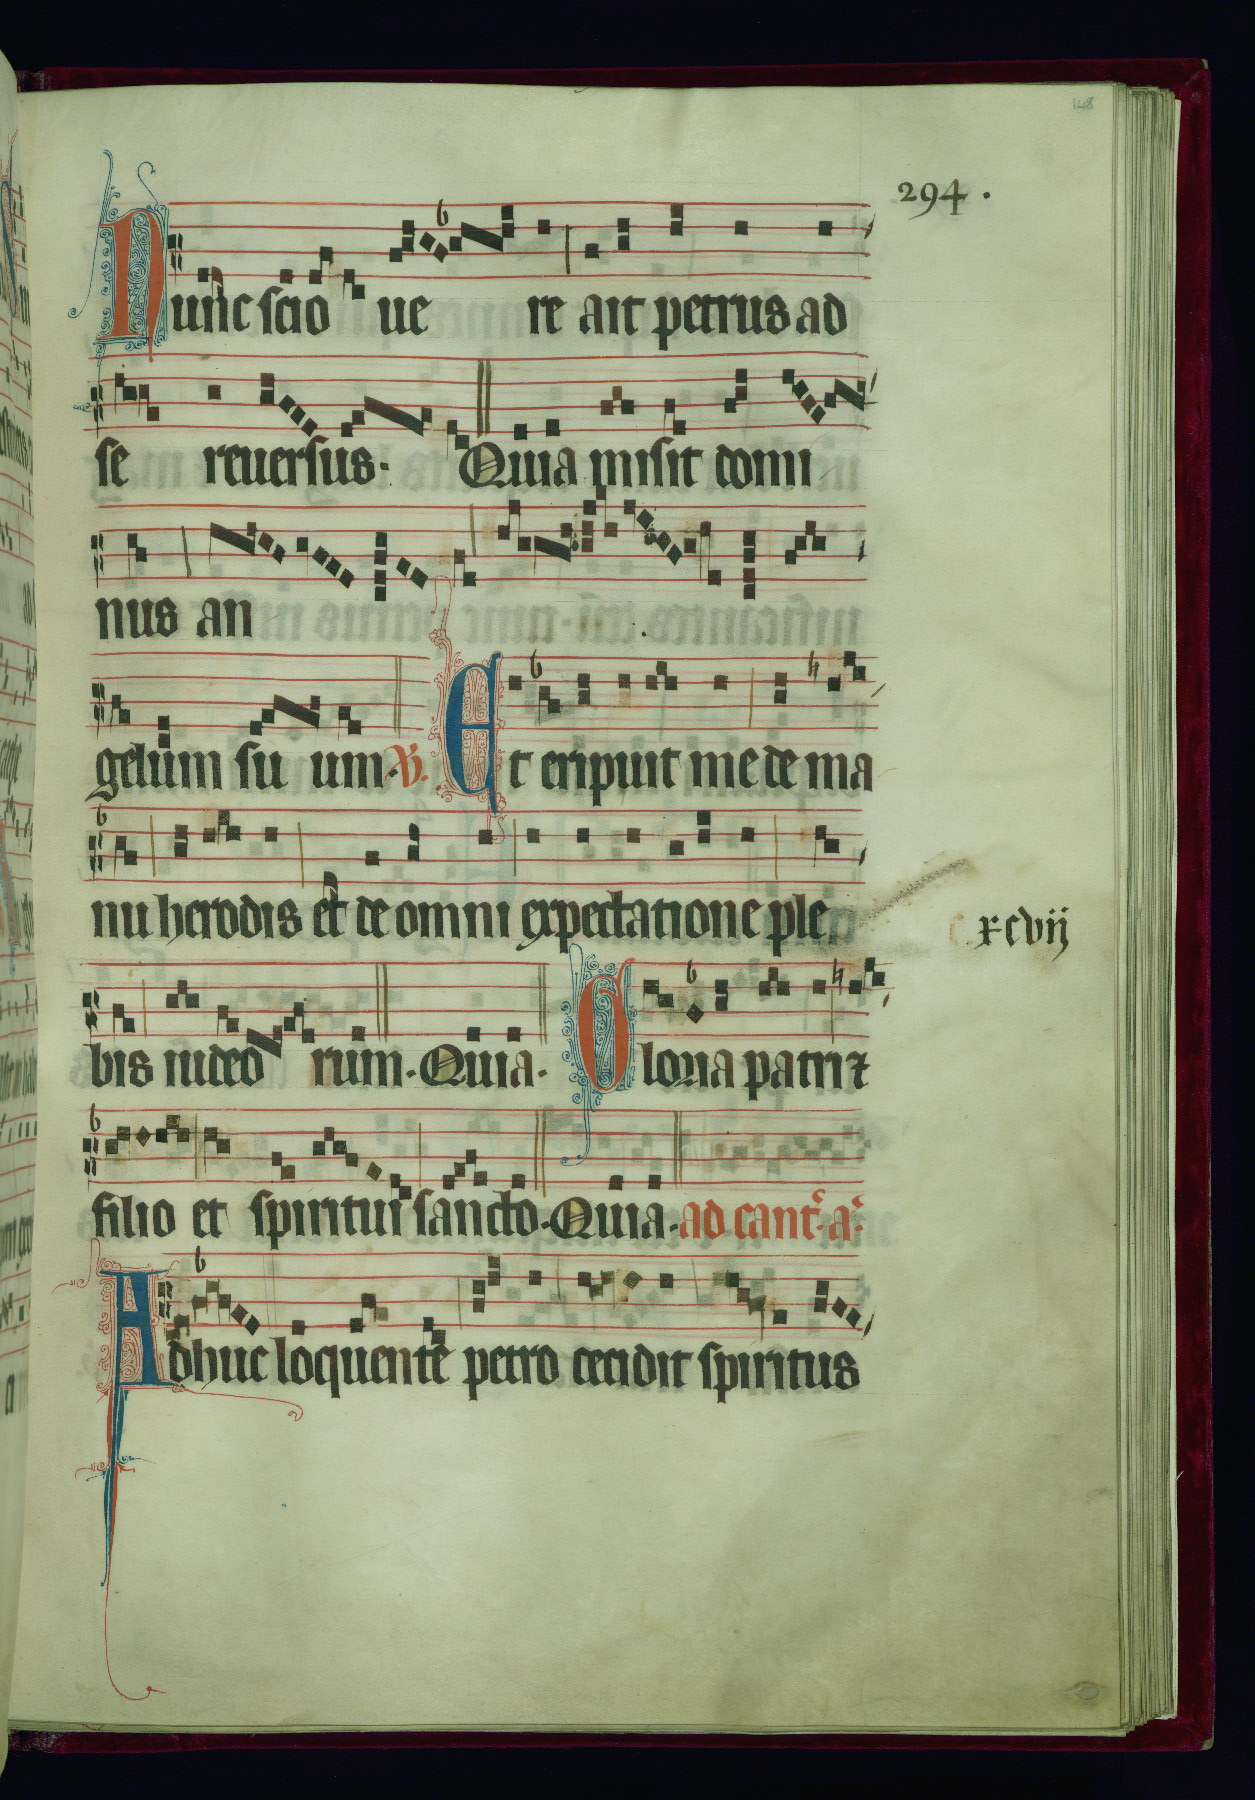 148
294.
Nunc scio uere ait petrus ad
se reuersus. Quia misit domi
nus an
gelum suum. V. Et eripuit me de ma
nu herodis et de omni expectatione ple
xcvij
bis iudeorum. Quia. Gloria patri ⁊
filio et spiritui sancto. Quia. ad cant. a.
Adhuc loquente petro cecidit spiritus